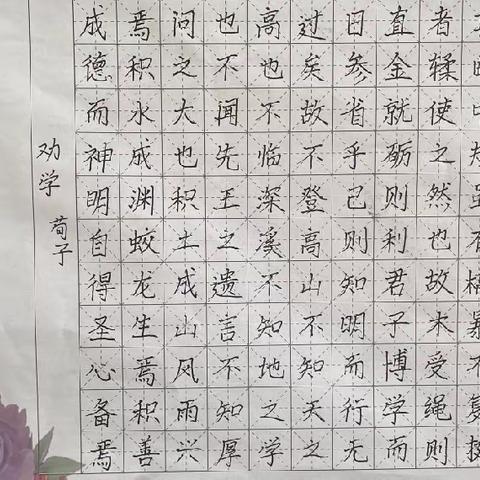 𫐓使之然也故木受绳则
直金就砺则利君子博学而
日参省乎己则知明而行无
过矣故不登高山不知天之
高也不临深溪不知地之学
也不闻先王之遗言不知厚
问之大也积土成山风雨兴
焉积水成渊蛟龙生焉积善
成德而神明自得圣心备焉
劝学 荀子